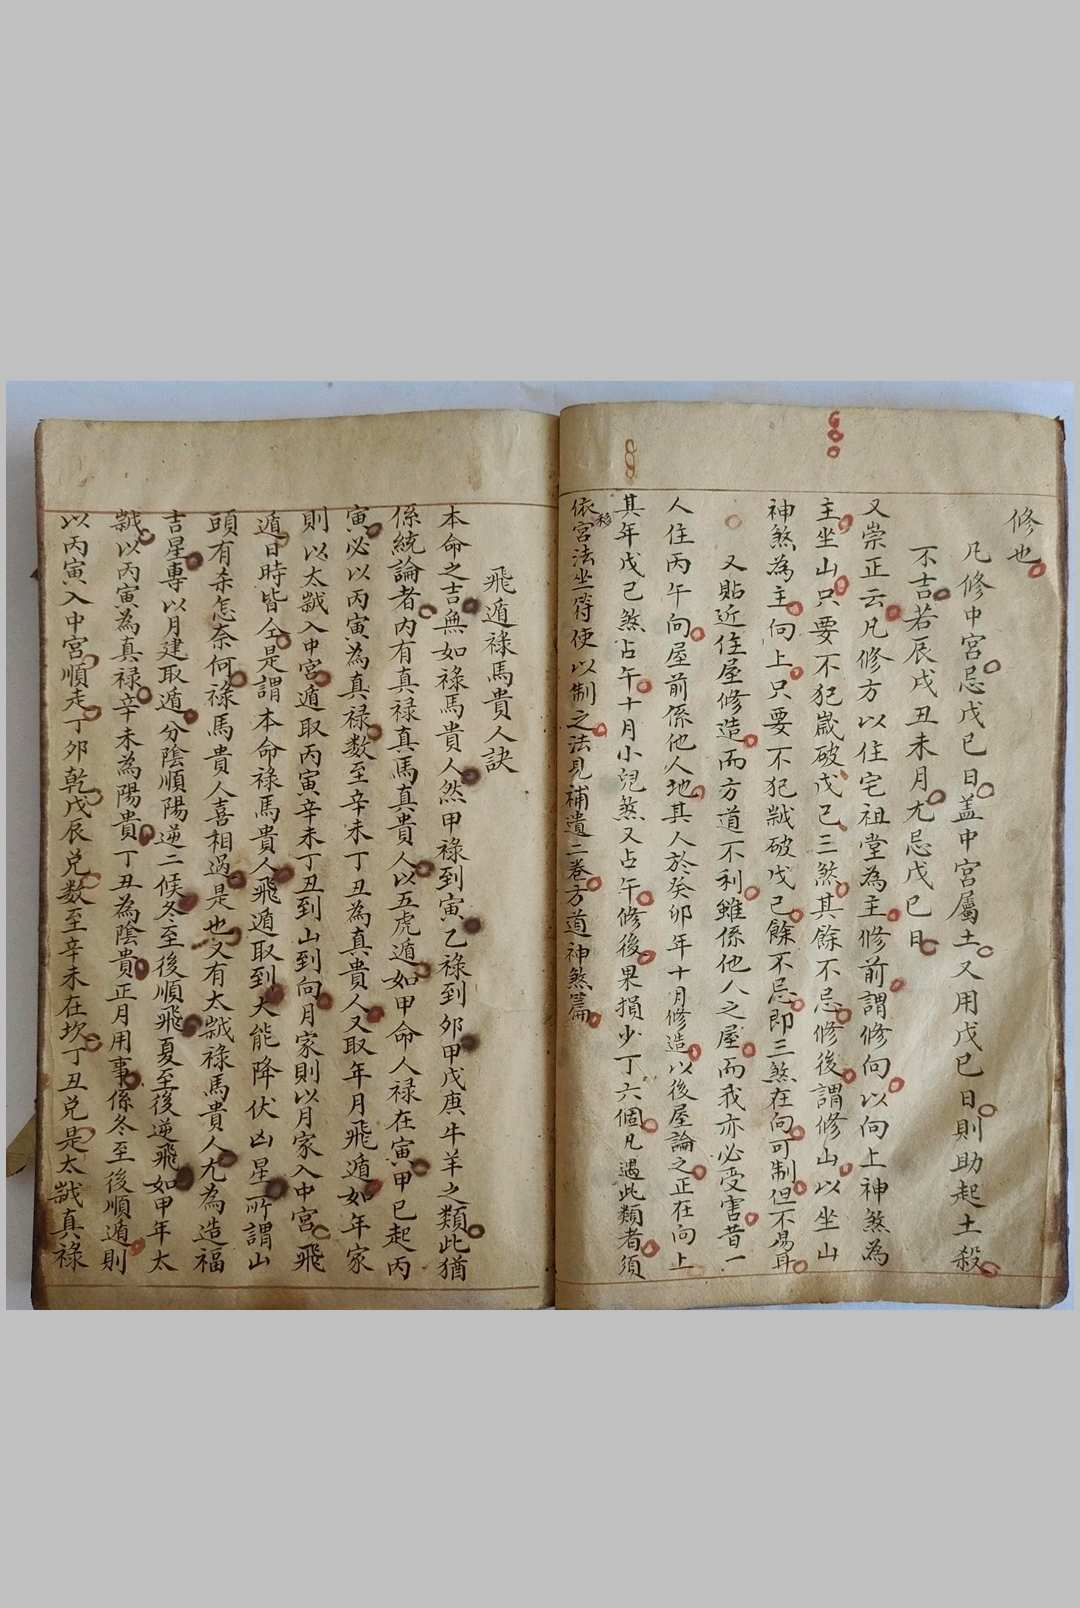 修也
凡修中宮忌戊己日盖中宮屬土又用戊己日則助起土殺
不吉若辰戌丑未月尤忌戊己日
又崇正云凡修方以住宅祖堂為主修前謂修向以向上神煞為
主坐山只要不犯嵗破戊己三煞其餘不忌修後謂修山以坐山
神煞為主向上只要不犯嵗破戊己餘不忌即三煞在向可制但不易耳
又貼近住屋修造而方道不利雖係他人之屋而我亦必受害昔一
人住丙午向屋前係他人地其人於癸卯年十月修造以後屋論之正在向上
其年戊己煞占午十月小兒煞又占午修後果損少丁六個凡遇此類者須
依移宮法坐符使以制之法見補遺二巻方道神煞篇
飛遁祿馬貴人訣
本命之吉無如祿馬貴人然甲祿到寅乙祿到夘甲戊庚牛羊之類此猶
係統論者内有真祿真馬真貴人以五虎遁如甲命人祿在寅甲己起丙
寅必以丙寅為真祿数至辛未丁丑為真貴人又取年月飛遁如年家
則以太嵗入中宮遁取丙寅辛未丁丑到山到向月家則以月家入中宮飛
遁日時皆仝是謂本命祿馬貴人飛遁取到大能降伏凶星所謂山
頭有杀怎奈何祿馬貴人喜相過是也又有太嵗祿馬貴人尤為造福
吉星專以月建取遁分陰順陽逆二候冬至後順飛夏至後逆飛如甲年太
嵗以丙寅為真祿辛未為陽貴丁丑為陰貴正月用事係冬至後順遁則
以丙寅入中宮順走丁夘乾戊辰兌数至辛未在坎丁丑兌是太嵗真祿